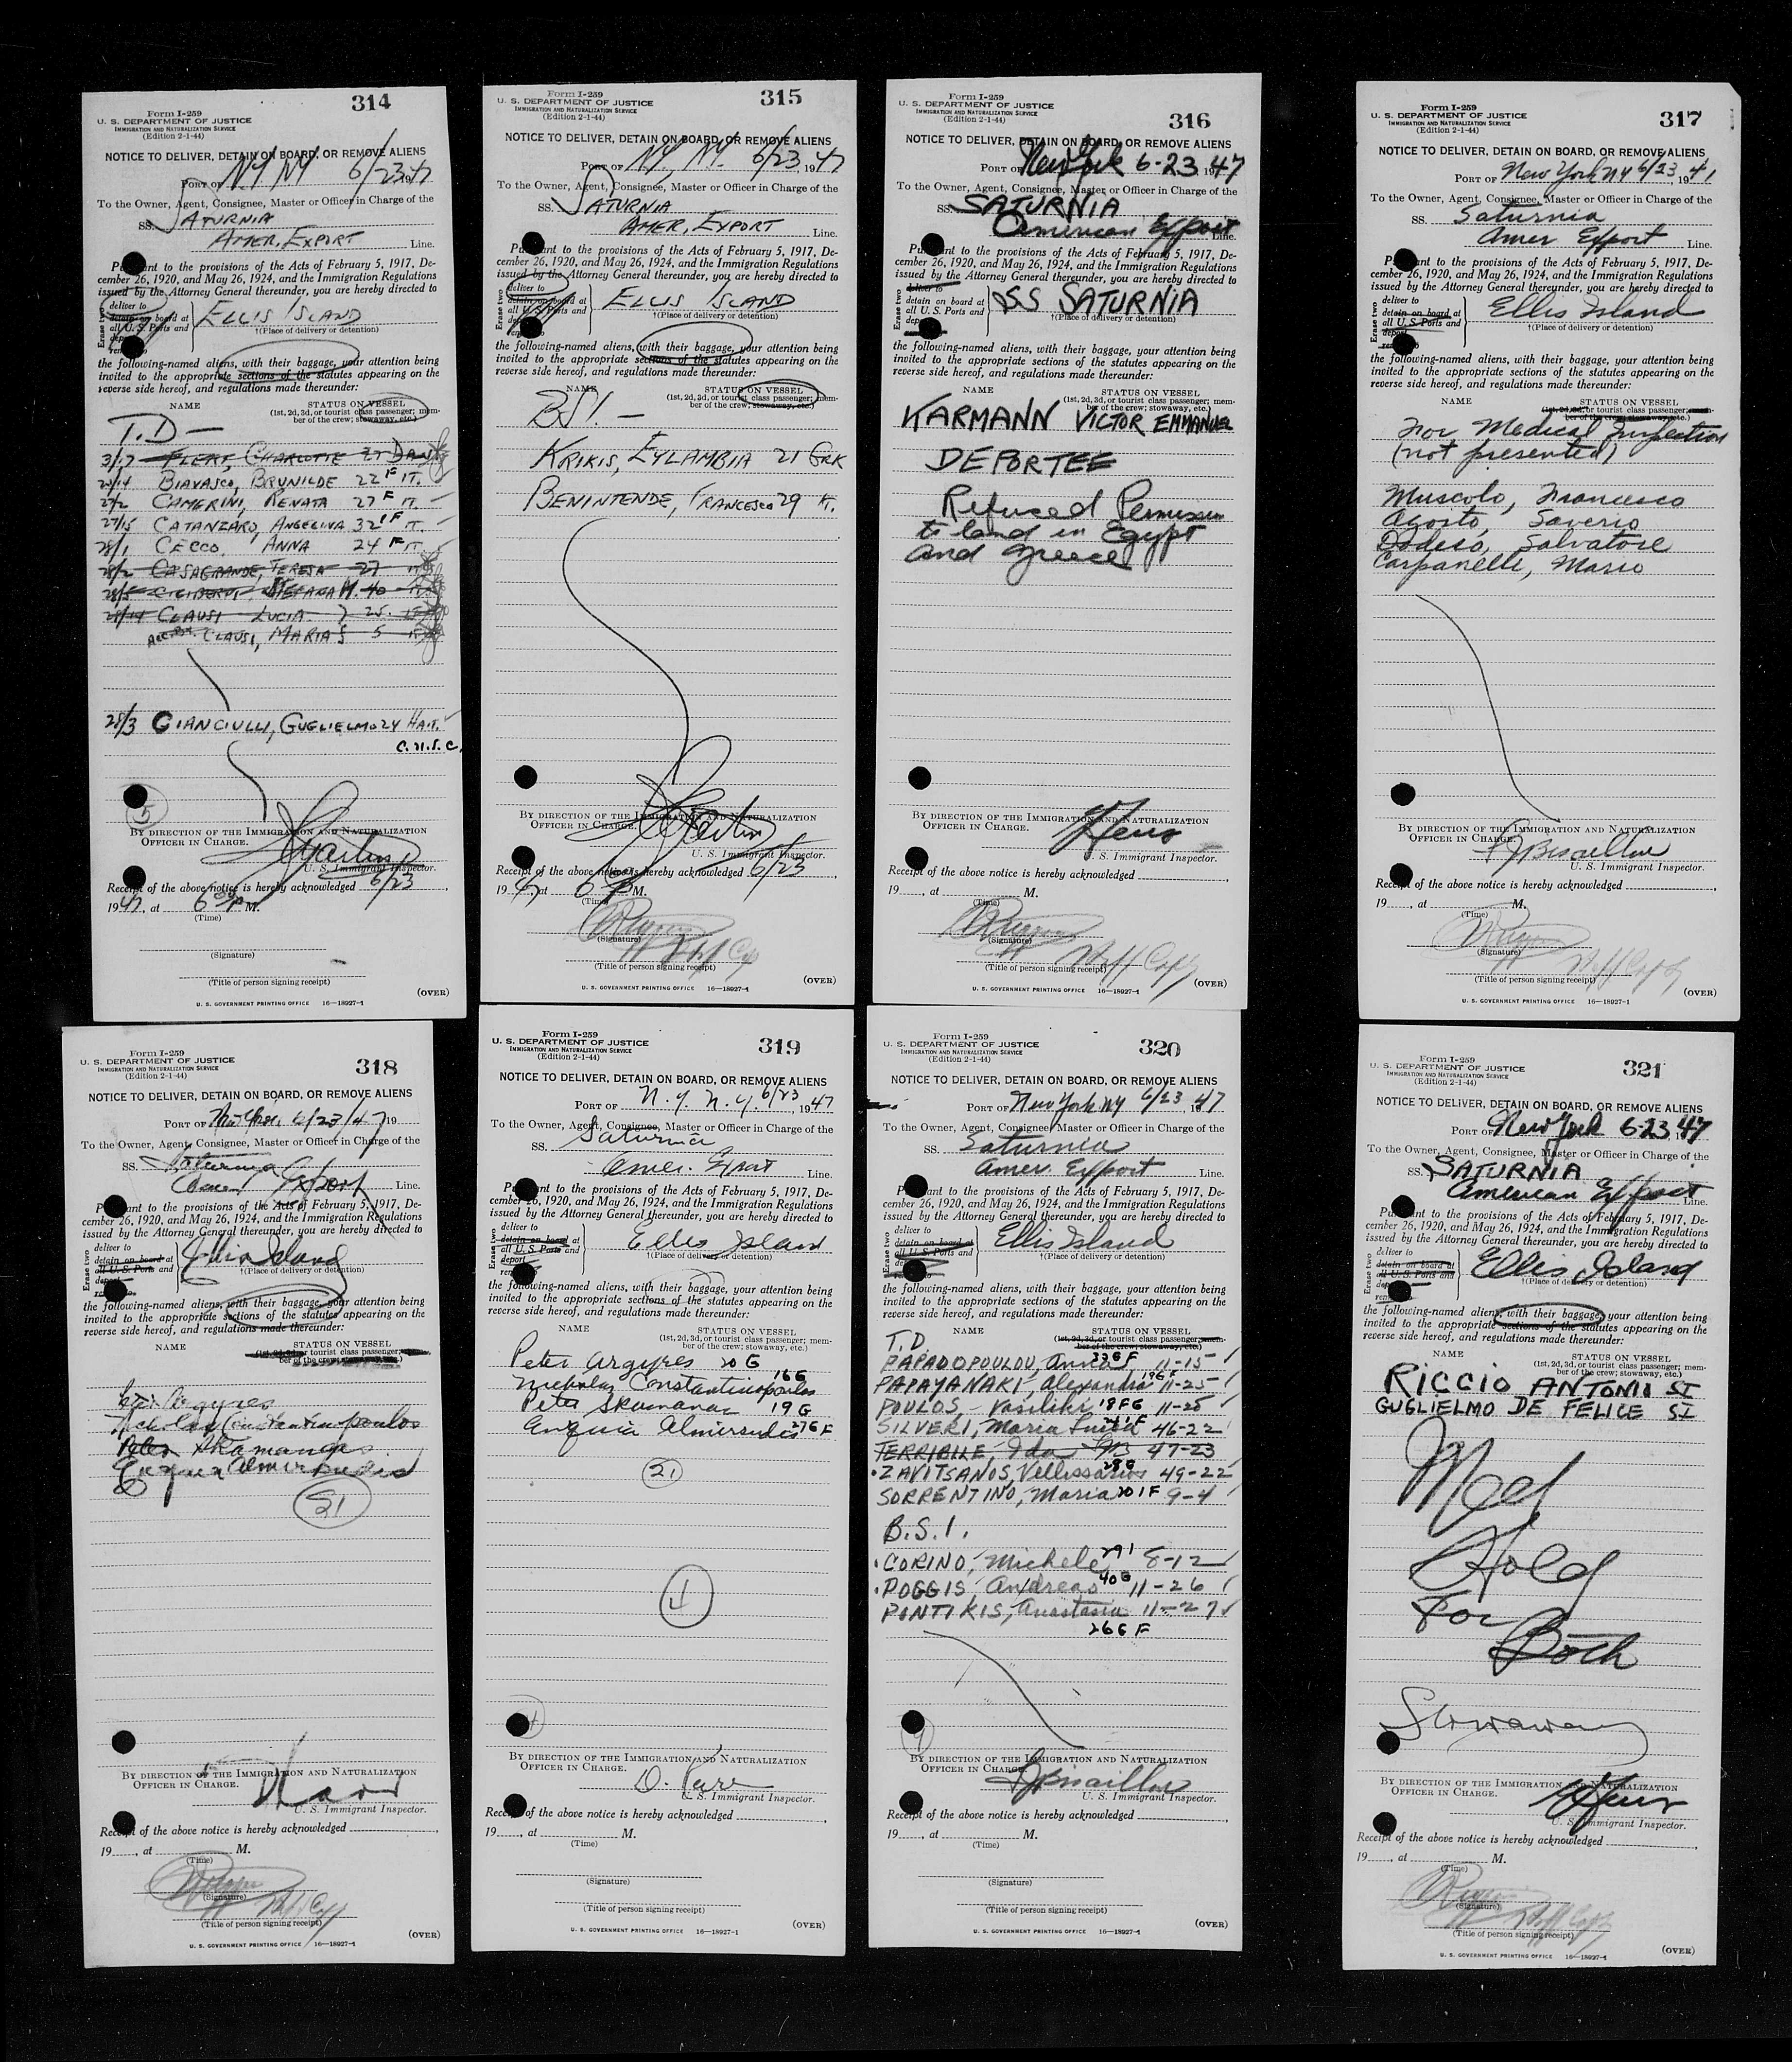 314
Form I-259
U. S. DEPARTMENT OF JUSTICE
IMMIGRATION AND NATURALIZATION SERVICE
(Edition 2-1-44)
NOTICE TO DELIVER, DETAIN ON BOARD, OR REMOVE ALIENS
PORT OF NY NY 6/23 1947
To the Owner, Agent, Consignee, Master or Officer in Charge of the
SS. SATURNIA
AMER. EXPORT Line.
Pursuant to the provisions of the Acts of February 5, 1917, De-
cember 26, 1920, and May 26, 1924, and the Immigration Regulations
issued by the Attorney General thereunder, you are hereby directed to
Erase two
deliver to
detain on board at
all U. S. Ports and
ELLIS ISLAND
†(Place of delivery or detention)
the following-named aliens, with their baggage, your attention being
invited to the appropriate sections of the statutes appearing on the
reverse side hereof, and regulations made thereunder:
NAME STATUS ON VESSEL
(1st, 2d, 3d, or tourist class passenger; mem-
ber of the crew; stowaway, etc.)
T.D —
3/17 CHARLOTTE 27
BIAVASCO, BRUNILDE 22 F IT.
27/2 CAMERINI, RENATA 27 F IT. —
27/15 CATANZARO, ANGELINA 32 F IT. —
28/1 CECCO, ANNA 24 F IT.
28/2 CASAGRANDE, TERESA 27 IT
28/5 STEFANA M. 40
28/14 CLAUSI LUCIA 25
CLAUSI, MARIA 5
28/3 GIANCIULLI, GUGLIELMO 24 HAIT.
C.N.S.C.
5
BY DIRECTION OF THE IMMIGRATION AND NATURALIZATION
OFFICER IN CHARGE.
U. S. Immigrant Inspector.
Receipt of the above notice is hereby acknowledged 6/23,
1947, at 6 P M.
(Time)
(Signature)
(Title of person signing receipt)
(OVER)
U. S. GOVERNMENT PRINTING OFFICE 16—18927-1
315
Form I-259
U. S. DEPARTMENT OF JUSTICE
IMMIGRATION AND NATURALIZATION SERVICE
(Edition 2-1-44)
NOTICE TO DELIVER, DETAIN ON BOARD, OR REMOVE ALIENS
PORT OF NY, NY. 6/23, 1947
To the Owner, Agent, Consignee, Master or Officer in Charge of the
SS. SATURNIA
AMER. EXPORT Line.
Pursuant to the provisions of the Acts of February 5, 1917, De-
cember 26, 1920, and May 26, 1924, and the Immigration Regulations
issued by the Attorney General thereunder, you are hereby directed to
Erase two
deliver to
detain on board at
all U. S. Ports and
ELLIS ISLAND
†(Place of delivery or detention)
the following-named aliens, with their baggage, your attention being
invited to the appropriate sections of the statutes appearing on the
reverse side hereof, and regulations made thereunder:
NAME STATUS ON VESSEL
(1st, 2d, 3d, or tourist class passenger; mem-
ber of the crew; stowaway, etc.)
BSI. —
KRIKIS, EYLAMBIA 21 GRK
BENINTENDE, FRANCESCO 29 IT.
BY DIRECTION OF THE IMMIGRATION AND NATURALIZATION
OFFICER IN CHARGE.
U. S. Immigrant Inspector.
Receipt of the above notice is hereby acknowledged 6/23,
1947, at 6 P M.
(Time)
(Signature)
(Title of person signing receipt)
(OVER)
U. S. GOVERNMENT PRINTING OFFICE 16—18927-1
316
Form I-259
U. S. DEPARTMENT OF JUSTICE
IMMIGRATION AND NATURALIZATION SERVICE
(Edition 2-1-44)
NOTICE TO DELIVER, DETAIN ON BOARD, OR REMOVE ALIENS
PORT OF New York 6-23, 1947
To the Owner, Agent, Consignee, Master or Officer in Charge of the
SS. SATURNIA
American Export Line.
Pursuant to the provisions of the Acts of February 5, 1917, De-
cember 26, 1920, and May 26, 1924, and the Immigration Regulations
issued by the Attorney General thereunder, you are hereby directed to
Erase two
deliver to
detain on board at
all U. S. Ports and
SS SATURNIA
†(Place of delivery or detention)
the following-named aliens, with their baggage, your attention being
invited to the appropriate sections of the statutes appearing on the
reverse side hereof, and regulations made thereunder:
NAME STATUS ON VESSEL
(1st, 2d, 3d, or tourist class passenger; mem-
ber of the crew; stowaway, etc.)
KARMANN VICTOR EMMANUEL
DEPORTEE
Refused Permission
to land in Egypt
and Greece
BY DIRECTION OF THE IMMIGRATION AND NATURALIZATION
OFFICER IN CHARGE.
U. S. Immigrant Inspector.
Receipt of the above notice is hereby acknowledged
19, at M.
(Time)
(Signature)
(Title of person signing receipt)
(OVER)
U. S. GOVERNMENT PRINTING OFFICE 16—18927-1
317
Form I-259
U. S. DEPARTMENT OF JUSTICE
IMMIGRATION AND NATURALIZATION SERVICE
(Edition 2-1-44)
NOTICE TO DELIVER, DETAIN ON BOARD, OR REMOVE ALIENS
PORT OF New York NY 6/23, 1947
To the Owner, Agent, Consignee, Master or Officer in Charge of the
SS. Saturnia
Amer Export Line.
Pursuant to the provisions of the Acts of February 5, 1917, De-
cember 26, 1920, and May 26, 1924, and the Immigration Regulations
issued by the Attorney General thereunder, you are hereby directed to
Erase two
deliver to
detain on board at
all U. S. Ports and
deport
Ellis Island
†(Place of delivery or detention)
the following-named aliens, with their baggage, your attention being
invited to the appropriate sections of the statutes appearing on the
reverse side hereof, and regulations made thereunder:
NAME STATUS ON VESSEL
(1st, 2d, 3d, or tourist class passenger; mem-
ber of the crew; stowaway, etc.)
For Medical Inspection
(not presented)
Muscolo, Francesco
Agosto, Saverio
Dodero, Salvatore
Carpanelli, Mario
BY DIRECTION OF THE IMMIGRATION AND NATURALIZATION
OFFICER IN CHARGE.
U. S. Immigrant Inspector.
Receipt of the above notice is hereby acknowledged
19, at M.
(Time)
(Signature)
(Title of person signing receipt)
(OVER)
U. S. GOVERNMENT PRINTING OFFICE 16—18927-1
318
Form I-259
U. S. DEPARTMENT OF JUSTICE
IMMIGRATION AND NATURALIZATION SERVICE
(Edition 2-1-44)
NOTICE TO DELIVER, DETAIN ON BOARD, OR REMOVE ALIENS
PORT OF 6/23/47 19
To the Owner, Agent, Consignee, Master or Officer in Charge of the
SS. Saturnia
Amer Export Line.
Pursuant to the provisions of the Acts of February 5, 1917, De-
cember 26, 1920, and May 26, 1924, and the Immigration Regulations
issued by the Attorney General thereunder, you are hereby directed to
Erase two
deliver to
detain on board at
all U. S. Ports and
Ellis Island
†(Place of delivery or detention)
the following-named aliens, with their baggage, your attention being
invited to the appropriate sections of the statutes appearing on the
reverse side hereof, and regulations made thereunder:
NAME STATUS ON VESSEL
or tourist class passenger;
Argyres
Nicholas Constantinopoulos
Peter Skamangas
SI
BY DIRECTION OF THE IMMIGRATION AND NATURALIZATION
OFFICER IN CHARGE.
U. S. Immigrant Inspector.
Receipt of the above notice is hereby acknowledged
19, at M.
(Time)
(Signature)
(Title of person signing receipt)
(OVER)
U. S. GOVERNMENT PRINTING OFFICE 16—18927-1
319
Form I-259
U. S. DEPARTMENT OF JUSTICE
IMMIGRATION AND NATURALIZATION SERVICE
(Edition 2-1-44)
NOTICE TO DELIVER, DETAIN ON BOARD, OR REMOVE ALIENS
PORT OF N.Y. N.Y. 6/23, 1947
To the Owner, Agent, Consignee, Master or Officer in Charge of the
SS. Saturnia
Amer. Export Line.
Pursuant to the provisions of the Acts of February 5, 1917, De-
cember 26, 1920, and May 26, 1924, and the Immigration Regulations
issued by the Attorney General thereunder, you are hereby directed to
Erase two
deliver to
detain on board at
all U. S. Ports and
deport
Ellis Island
†(Place of delivery or detention)
the following-named aliens, with their baggage, your attention being
invited to the appropriate sections of the statutes appearing on the
reverse side hereof, and regulations made thereunder:
NAME STATUS ON VESSEL
(1st, 2d, 3d, or tourist class passenger; mem-
ber of the crew; stowaway, etc.)
Peter Argyres 20 G
Nicholas Constantinopoulos 16 G
Peter 19 G
27 G F
SI
4
4
BY DIRECTION OF THE IMMIGRATION AND NATURALIZATION
OFFICER IN CHARGE.
U. S. Immigrant Inspector.
Receipt of the above notice is hereby acknowledged
19, at M.
(Time)
(Signature)
(Title of person signing receipt)
(OVER)
U. S. GOVERNMENT PRINTING OFFICE 16—18927-1
320
Form I-259
U. S. DEPARTMENT OF JUSTICE
IMMIGRATION AND NATURALIZATION SERVICE
(Edition 2-1-44)
NOTICE TO DELIVER, DETAIN ON BOARD, OR REMOVE ALIENS
PORT OF New York NY 6/23, 1947
To the Owner, Agent, Consignee, Master or Officer in Charge of the
SS. Saturnia
Amer. Export Line.
Pursuant to the provisions of the Acts of February 5, 1917, De-
cember 26, 1920, and May 26, 1924, and the Immigration Regulations
issued by the Attorney General thereunder, you are hereby directed to
Erase two
deliver to
detain on board at
all U. S. Ports and
Ellis Island
†(Place of delivery or detention)
the following-named aliens, with their baggage, your attention being
invited to the appropriate sections of the statutes appearing on the
reverse side hereof, and regulations made thereunder:
NAME STATUS ON VESSEL
(1st, 2d, 3d, or tourist class passenger; mem-
ber of the crew; stowaway, etc.)
T.D.
PAPADOPOULOU, 11-15
PAPAYANAKI, Alexandra 19 G F 11-25
POULOS - Vasiliki 18 F G 11-25
SILVERI, Maria 46-22
TERRIBILE, Ida 47-23
ZAVITSANOS, Vellissarios 28 G 49-22
SORRENTINO, Maria 20 I F 9-4
B.S.I.
CORINO, Michele 29 I 8-12
POGGIS, Andreas 40 G 11-26
PONTIKIS, Anastasia 11-27
26 G F
9
BY DIRECTION OF THE IMMIGRATION AND NATURALIZATION
OFFICER IN CHARGE.
U. S. Immigrant Inspector.
Receipt of the above notice is hereby acknowledged
19, at M.
(Time)
(Signature)
(Title of person signing receipt)
(OVER)
U. S. GOVERNMENT PRINTING OFFICE 16—18927-1
321
Form I-259
U. S. DEPARTMENT OF JUSTICE
IMMIGRATION AND NATURALIZATION SERVICE
(Edition 2-1-44)
NOTICE TO DELIVER, DETAIN ON BOARD, OR REMOVE ALIENS
PORT OF New York 6-23, 1947
To the Owner, Agent, Consignee, Master or Officer in Charge of the
SS. SATURNIA
American Export Line.
Pursuant to the provisions of the Acts of February 5, 1917, De-
cember 26, 1920, and May 26, 1924, and the Immigration Regulations
issued by the Attorney General thereunder, you are hereby directed to
Erase two
deliver to
detain on board at
all U. S. Ports and
Ellis Island
†(Place of delivery or detention)
the following-named aliens, with their baggage, your attention being
invited to the appropriate sections of the statutes appearing on the
reverse side hereof, and regulations made thereunder:
NAME STATUS ON VESSEL
(1st, 2d, 3d, or tourist class passenger; mem-
ber of the crew; stowaway, etc.)
RICCIO ANTONIO SI
GUGLIELMO DE FELICE SI
Med
Hold
For
Both
Stowaway
BY DIRECTION OF THE IMMIGRATION AND NATURALIZATION
OFFICER IN CHARGE.
U. S. Immigrant Inspector.
Receipt of the above notice is hereby acknowledged
19, at M.
(Time)
(Signature)
(Title of person signing receipt)
(OVER)
U. S. GOVERNMENT PRINTING OFFICE 16—18927-1